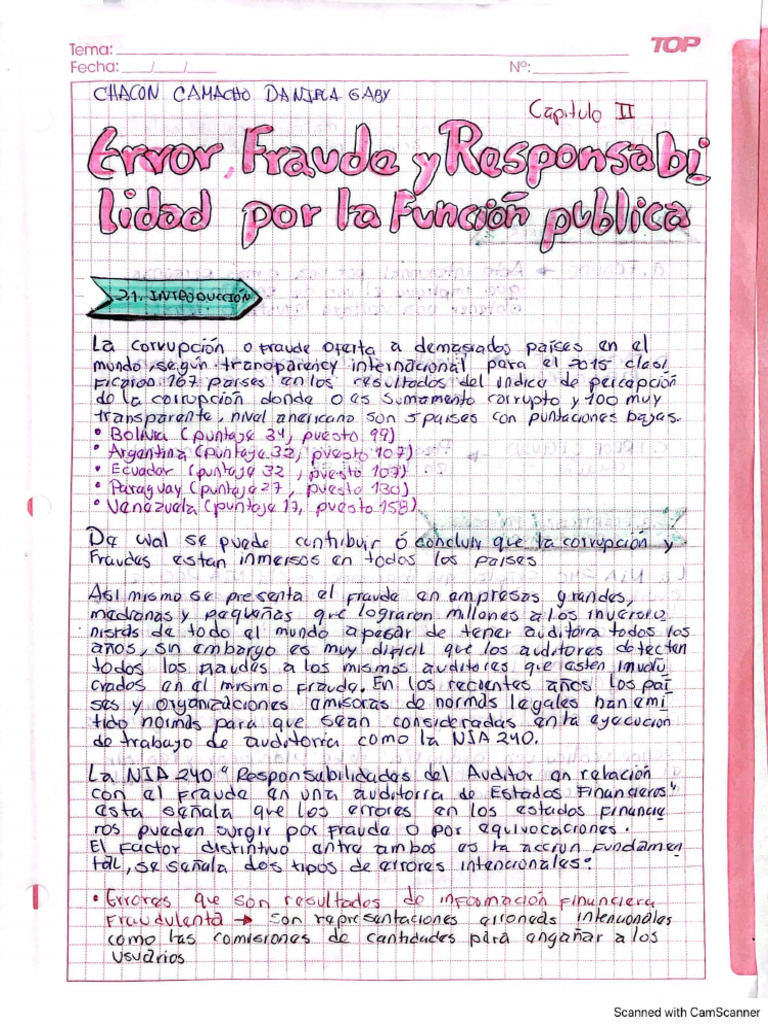 Tema:
TOP
Fecha: __/__/__
Nº:
CHACON CAMACHO DANIELA GABY
Capitulo II
Error, Fraude y Responsabi
lidad por la Función publica
2.1. INTRODUCCIÓN
La corrupción o fraude oferta a demasiados países en el
mundo, según transparency internacional para el 2015 clasi
ficaron 167 países en los resultados del indice de percepción
de la corrupción donde 0 es sumamente corrupto y 100 muy
transparente, nivel americano son 5 países con puntaciones bajas.
• Bolivia (puntaje 34, puesto 99)
• Argentina (puntaje 32, puesto 107)
• Ecuador (puntaje 32, puesto 107)
• Paraguay (puntaje 27, puesto 130)
• Venezuela (puntaje 17, puesto 158)
De cual se puede contribuir ó concluir que la corrupción y
fraudes estan inmersos en todos los países
Asi mismo se presenta el fraude en empresas grandes,
medianas y pequeñas que lograron millones a los inversio
nistas de todo el mundo apesar de tener auditoría todos los
años, sin embargo es muy difícil que los auditores detecten
todos los fraudes a los mismos auditores que esten involu
crados en el mismo fraude. En los recientes años los paí
ses y organizaciones emisoras de normas legales han emi
tido normas para que sean consideradas en la ejecución
de trabajo de auditoria como la NIA 240.
La NIA 240 "Responsabilidades del Auditor en relación
con el fraude en una auditorra de Estados Financieros"
esta señala que los errores en los estados financie
ros pueden surgir por fraude o por equivocaciones.
El factor distintivo entre ambos es la accion fundamen
tal, se señala dos tipos de errores intencionales:
• Errores que son resultados de información financiera
fraudulenta → son representaciones erroneas intencionales
como las comisiones de cantidades para engañar a los
usuarios
Scanned with CamScanner